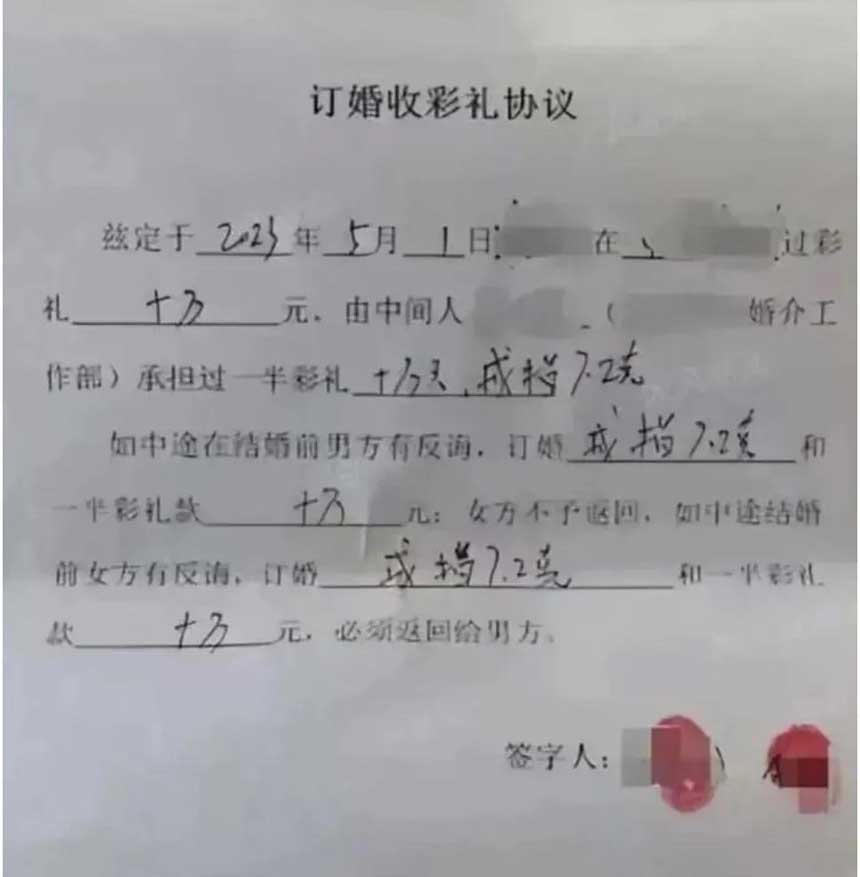 订婚收彩礼协议
兹定于2023年5月1日 在 过彩
礼十万元，由中间人 （ 婚介工
作部）承担过一半彩礼十万元，戒指7.2克
如中途在结婚前男方有反诲，订婚戒指7.2克和
一半彩礼款十万元；女方不予返回，如中途结婚
前女方有反诲，订婚戒指7.2克和一半彩礼
款十万元，必须返回给男方。
签字人：